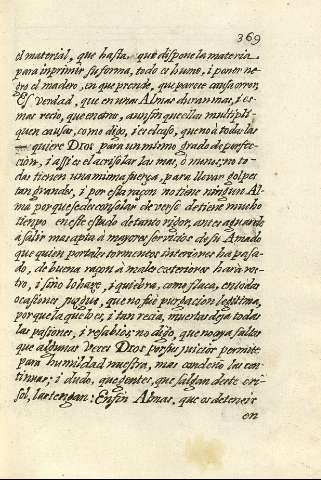 369
el material, que hasta, que dispone la materia
para inprimir su forma, todo es humo, i poner ne-
gro el madero, en que prende, que parece causa orrer.
Es verdad, que en unas Almas dura mas, i es
mas recio, que en otras, aun sin que ellas multipli-
quen causas, como digo, i es el caso, que nò à todas las
quiere Dios para un mismo grado de perfec-
ción, i assi es el acrisolar las mas, ò menos; no to-
das tienen una misma fuerça, para llevar golpes
tan grandes, i por esta raçon no tiene ningun Al-
ma por que se desconsolar de verse detiene mucho
tiempo en este estado de tanto rigor, antes aguarde
à salir mas apta à mayores servicios de su Amado
que quien por tales tormentos interiores ha pasa-
do, de buena raçon à males exteriores harà ros-
tro, i sino lo haze, i quiebra, como flaca, en todas
ocasiones jusgua, que no fuè purgacion legitima,
porque la que lo es, i tan recia, muertas deja todas
las pasiones, i resabios: no digo, que no aya faltas
que algunas veces Dios por sus juicios permite
para humildad nuestra, mas condeno las con-
tinuas; i dudo, que gentes, que salgan deste cri-
sol, las tengan: Enfin Almas, que os deteneis
en